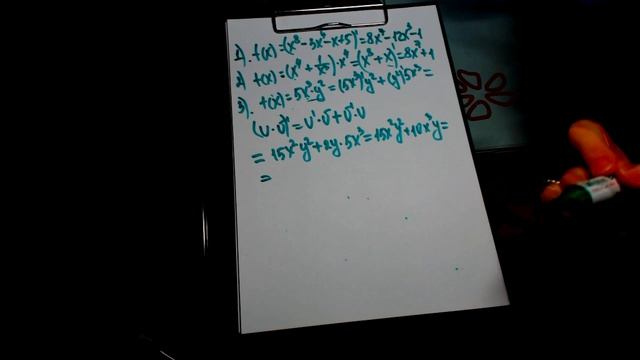 1). f(x)=(x⁸-3x⁴-x+5)'=8x⁷-12x³-1
2) f(x)=(x⁴+1/x³)·x⁴=(x⁸+x)'=8x⁷+1
3). f(x)=5x³·y²=(5x³)'y²+(y²)'5x³=
(U·V)'=U'·V+V'·U
=15x²y²+2y·5x³=15x²y²+10x³y=
=